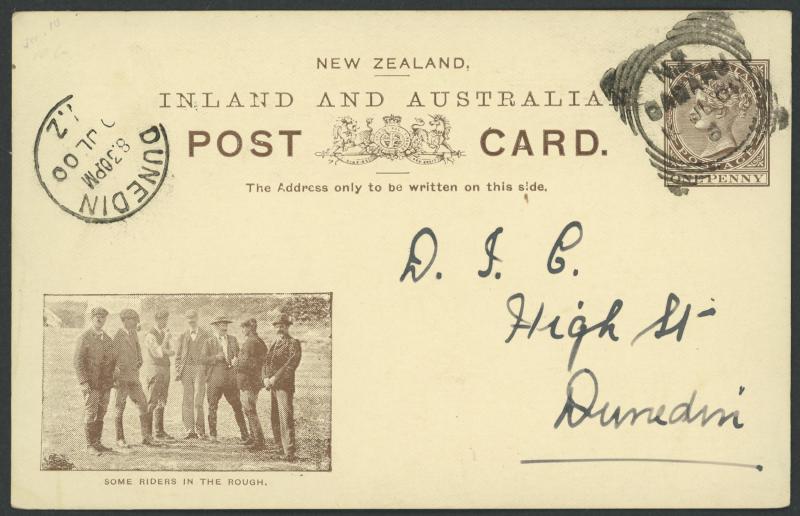 NEW ZEALAND.
INLAND AND AUSTRALIAN
POST CARD.
The Address only to be written on this side.
DUNEDIN
8.30PM
JL 00
N.Z
POSTAGE
ONE PENNY
D. I. C.
High St
Dunedin
SOME RIDERS IN THE ROUGH.